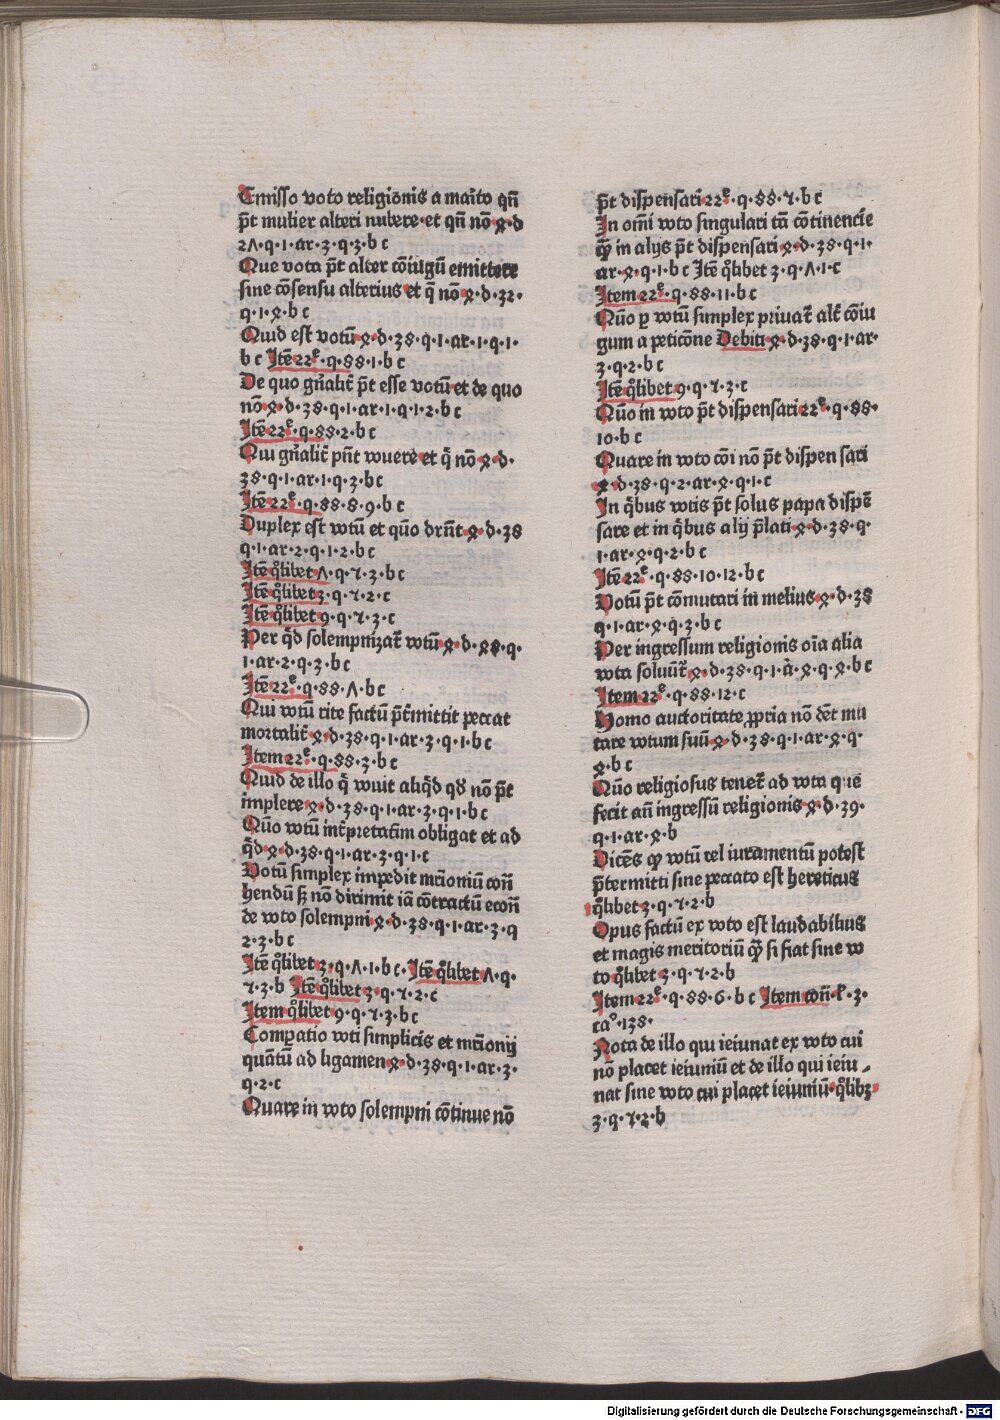 Emisso voto religiōnis a marito qn̄
p̄t mulier alteri nubere·et qn̄ nō 4·d
27·q·1·ar·3·q·3·b c
Que vota p̄t alter cōiugū emittere
sine cōsensu alterius et q̄ nō 4·d·32·
q·1·4·b c
Quid est votū 4·d·38·q·1·ar·1·q·1·
b c Itē 22ᵉ·q·88·1·b c
De quo gn̄alit̄ p̄t esse votū et de quo
nō 4·d·38·q·1·ar·1·q·1·2·b c
Itē 22ᵉ·q·88·2·b c
Qui gn̄alit̄ pn̄t vovere et q̄ nō 4·d·
38·q·1·ar·1·q·3·b c
Itē 22ᵉ·q·88·8·9·b c
Duplex est votū et quō drn̄t 4·d·38
q·1·ar·2·q·1·2·b c
Itē qͦlibet 7·q·1·3·b c
Itē qͦlibet 3·q·1·2·c
Itē qͦlibet 9·q·1·3·c
Per qͥd solempnizat̄ votū 4·d·48·q·
1·ar·2·q·3·b c
Itē 22ᵉ·q·88·7·b c
Qui votū rite factū p̄t̄mittit peccat
mortalit̄ 4·d·38·q·1·ar·3·q·1·b c
Item 22ᵉ·q·88·3·b c
Quid de illo qͥ vovit aliqͥd qd̄ nō p̄t
implere 4·d·38·q·1·ar·3·q·1·b c
Quō votū int̄pretatīm obligat et ad
qͥd 4·d·38·q·1·ar·3·q·1·c
Votū simplex impedit mr̄ioniū con̄
hendū sʒ nō dirimit iā cōtractū econ̄
de voto solempni 4·d·38·q·1·ar·3·q
2·3·b c
Itē qͦlibet 3·q·7·1·b c·Itē qͦlibet 7·q·
1·3·b Itē qͦlibet 3·q·1·2·c
Item qͦlibet 9·q·1·3·b c
Compatio voti simplicis et mr̄ionij
quātū ad ligamen 4·d·38·q·1·ar·3·
q·2·c
Quare in voto solempni cōtinue nō
p̄t dispensari 22ᵉ·q·88·1·b c
In om̄i voto singulari tā cōtinencie
qͣ in alijs p̄t dispensari 4·d·38·q·1·
ar·4·q·1·b c Itē qͦlibet 3·q·7·1·c
Item 22ᵉ·q·88·11·b c
Quō p votū simplex privat̄ alt̄ cōiu
gum a peticōne Debiti 4·d·38·q·1·ar·
3·q·2·b c
Itē qͦlibet 9·q·1·3·c
Quō in voto p̄t dispensari 22ᵉ·q·88·
10·b c
Quare in voto cōi nō p̄t dispen sari
4·d·38·q·2·ar·4·q·1·c
In qͥbus votis p̄t solus papa dispē
sare et in qͥbus alij p̄lati 4·d·38·q·
1·ar·4·q·2·b c
Itē 22ᵉ·q·88·10·12·b c
Votū p̄t cōmutari in melius 4·d·38
q·1·ar·4·q·3·b c
Per ingressum religionis oīa alia
vota soluūt̄ 4·d·38·q·1·ā·4·q·4·b c
Item 22ᵉ·q·88·12·c
Homo auctoritate ꝓpria nō dēt mu
tare votum suū 4·d·38·q·1·ar·4·q·
4·b c
Quō religiosus tenet̄ ad vota que
fecit an̄ ingressū religionis 4·d·39·
q·1·ar·4·b
Dicēs ꝙ votū vel iuramentū potest
p̄termitti sine peccato est hereticus
qͦlibet 3·q·1·2·b
Opus factū ex voto est laudabilius
et magis meritoriū qͣ si fiat sine vo
to qͦlibet 3·q·1·2·b
Item 22ᵉ·q·88·6·b c Item con̄·l̄·3·
ca°·138·
Nota de illo qui ieiunat ex voto cui
nō placet ieiuniū et de illo qui ieiu-
nat sine voto cui placet ieiuniū·qͦlibʒ
3·q·1·2·b
Digitalisierung gefördert durch die Deutsche Forschungsgemeinschaft - DFG